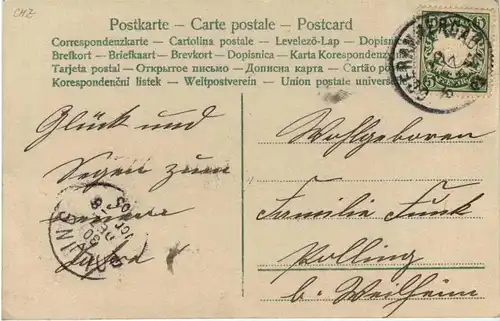 CHZ
Postkarte – Carte postale – Postcard
Correspondenzkarte – Cartolina postale – Levelező-Lap – Dopisnic
Brefkort – Briefkaart – Brevkort – Dopisnica – Karta Korespondency
Tarjeta postal – Открытое письмо – Дописна карта – Cartão po
Korespondenční listek – Weltpostverein – Union postale universe
5
5
Glück und
Segen zum
neuen
Jahre!
Wohlgeboren
Familie Funk
Polling
b. Weilheim
30
DEC
03